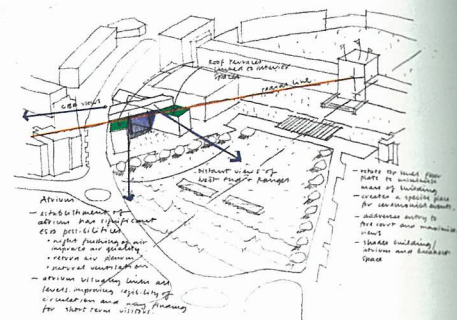 Roof terraces
linked to interior
spaces
CBD views
Distant views of
Atrium
- establishment of
atrium has significant
ESD possibilities
• night flushing of air
improve air quality
• return air plenum
• natural ventilation
- atrium visually links all
levels, improving legibility of
circulation and way finding
for short term visitors.
- rotate top level floor
plate to minimise
mass of building
- creates a specific place
for ceremonial events.
- addresses entry to
the court and maximise
views
- shades building/
atrium and breakout
space